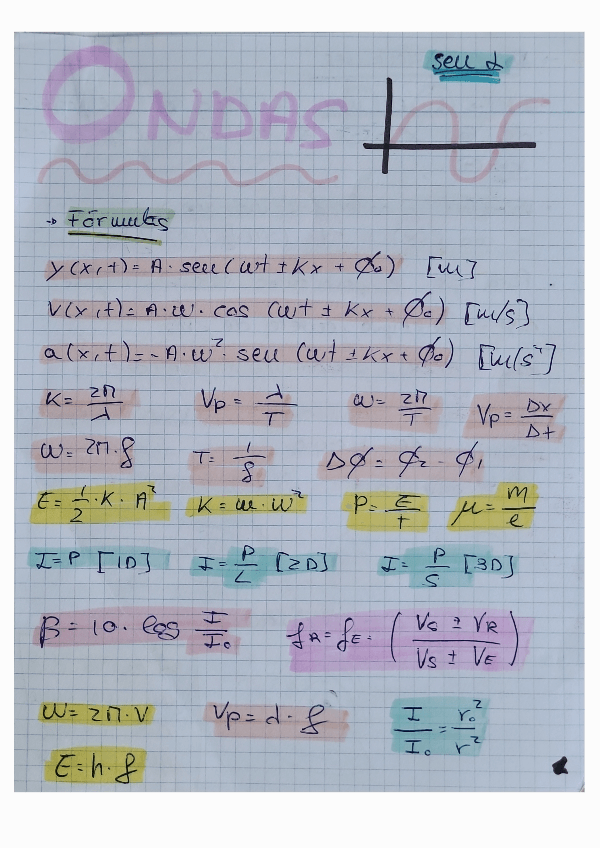 sen α
ONDAS
→ Fórmulas
y(x,t) = A · sen(ωt ± Kx + ϕ₀) [m]
v(x,t) = A · ω · cos (ωt ± Kx + ϕ₀) [m/s]
a(x,t) = -A · ω² · sen (ωt ± Kx + ϕ₀) [m/s²]
K = 2π/λ Vp = λ/T ω = 2π/T Vp = Δx/Δt
ω = 2π · f T = 1/f Δϕ = ϕ₂ - ϕ₁
E = 1/2 · K · A² K = m · ω² P = E/t μ = m/l
I = P [1D] I = P/L [2D] I = P/S [3D]
β = 10 · log I/I₀ f_R = f_E · (V_S ± V_R / V_S ± V_E)
ω = 2π · V Vp = d · f I/I₀ = r₀²/r²
E = h · f